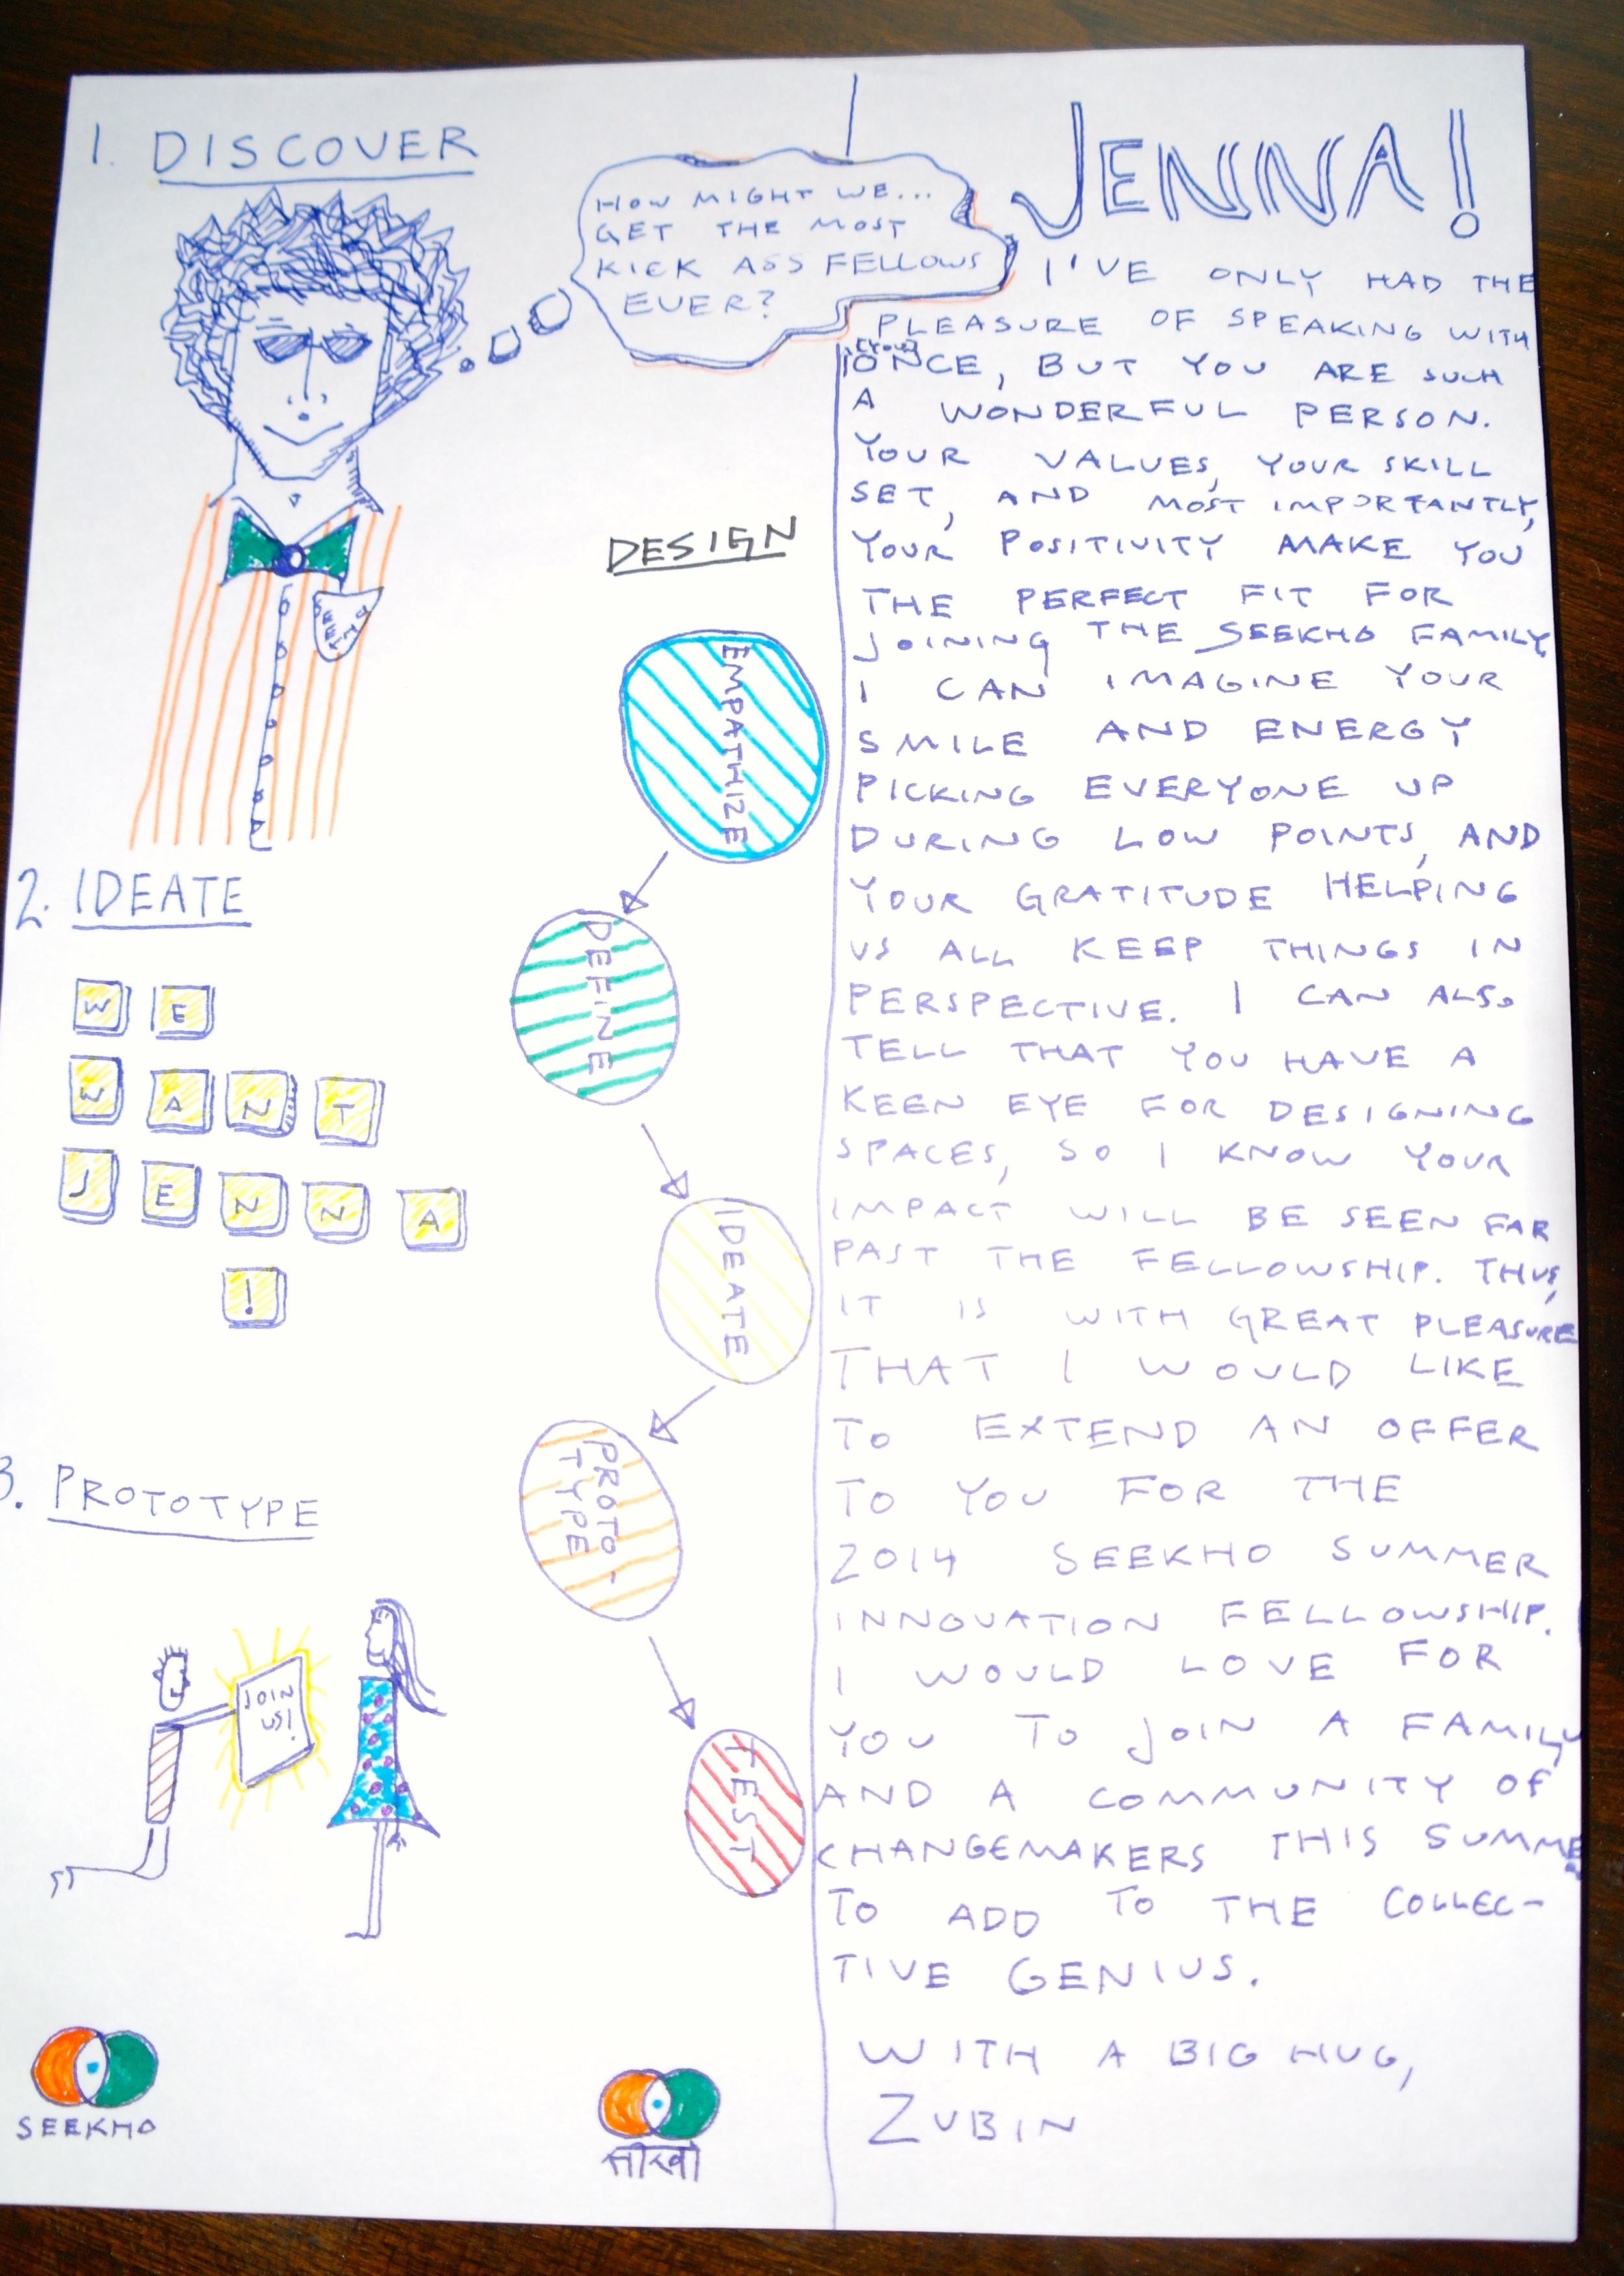 1. DISCOVER
HOW MIGHT WE...
GET THE MOST
KICK ASS FELLOWS
EVER?
DESIGN
EMPATHIZE
DEFINE
IDEATE
PROTO-
TYPE
TEST
2. IDEATE
WE
WANT
JENNA
!
3. PROTOTYPE
JOIN
US!
SEEKHO
सीखो
JENNA!
I'VE ONLY HAD THE
PLEASURE OF SPEAKING WITH
(YOU)
ONCE, BUT YOU ARE SUCH
A WONDERFUL PERSON.
YOUR VALUES, YOUR SKILL
SET, AND MOST IMPORTANTLY,
YOUR POSITIVITY MAKE YOU
THE PERFECT FIT FOR
JOINING THE SEEKHO FAMILY.
I CAN IMAGINE YOUR
SMILE AND ENERGY
PICKING EVERYONE UP
DURING LOW POINTS, AND
YOUR GRATITUDE HELPING
US ALL KEEP THINGS IN
PERSPECTIVE. I CAN ALSO
TELL THAT YOU HAVE A
KEEN EYE FOR DESIGNING
SPACES, SO I KNOW YOUR
IMPACT WILL BE SEEN FAR
PAST THE FELLOWSHIP. THUS,
IT IS WITH GREAT PLEASURE
THAT I WOULD LIKE
TO EXTEND AN OFFER
TO YOU FOR THE
2014 SEEKHO SUMMER
INNOVATION FELLOWSHIP.
I WOULD LOVE FOR
YOU TO JOIN A FAMILY
AND A COMMUNITY OF
CHANGEMAKERS THIS SUMMER
TO ADD TO THE COLLEC-
TIVE GENIUS.
WITH A BIG HUG,
ZUBIN